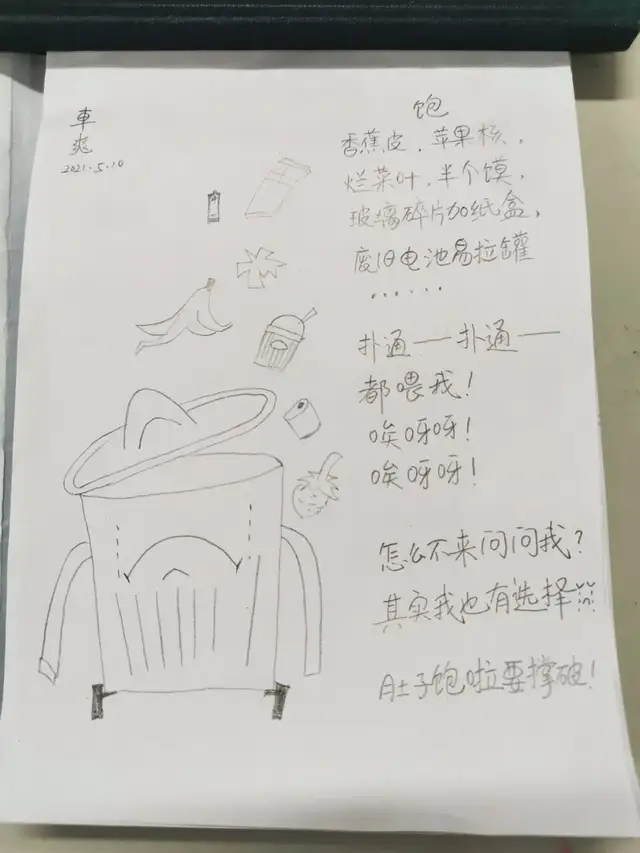 車
爽
2021.5.10
饱
香蕉皮、苹果核，
烂菜叶、半个馍，
玻璃碎片加纸盒，
废旧电池易拉罐
······
扑通——扑通——
都喂我！
唉呀呀！
唉呀呀！
怎么不来问问我？
其实我也有选择
肚子饱啦要撑破！